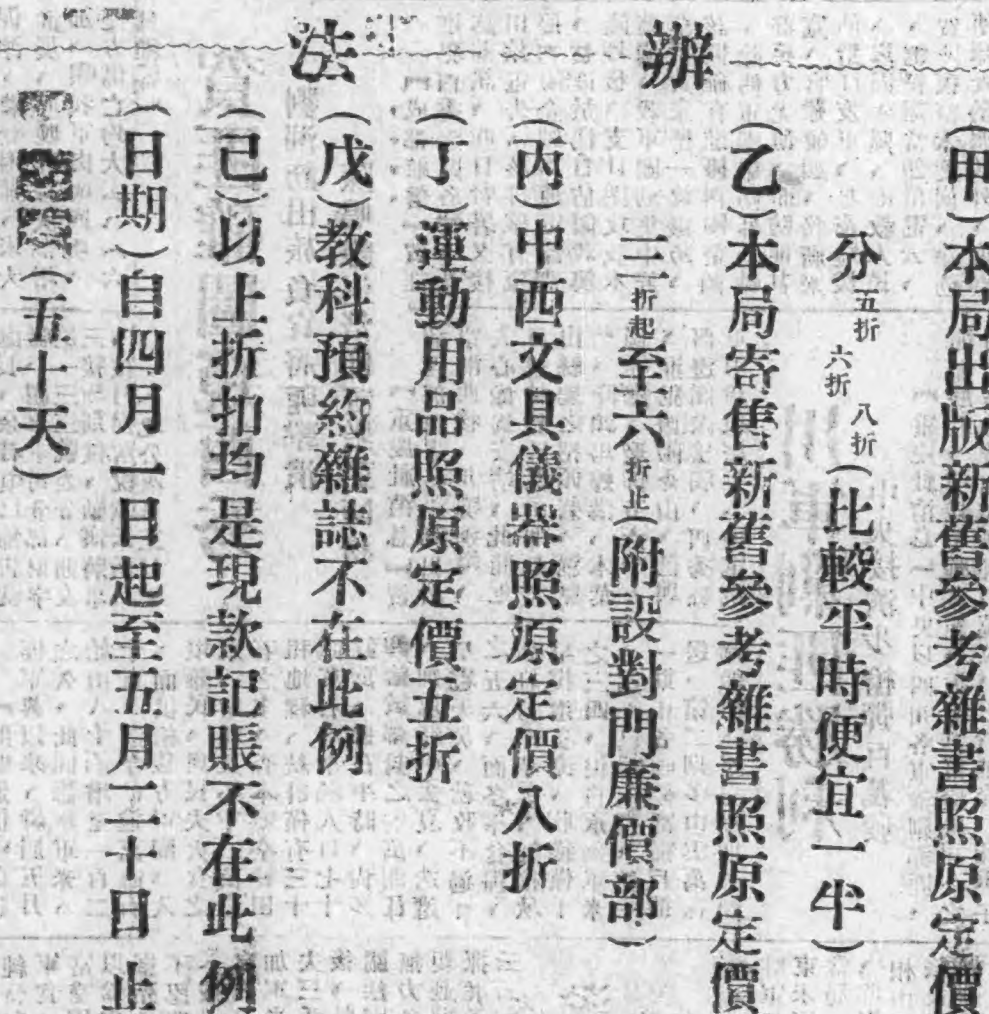 辦法
(甲)本局出版新舊參考雜書照原定價
分五折六折八折(比較平時便宜一半)
(乙)本局寄售新舊參考雜書照原定價
三折起至六折止(附設對門廉價部)
(丙)中西文具儀器照原定價八折
(丁)運動用品照原定價五折
(戊)教科預約雜誌不在此例
(己)以上折扣均是現款記賬不在此例
(日期)自四月一日起至五月二十日止
(五十天)